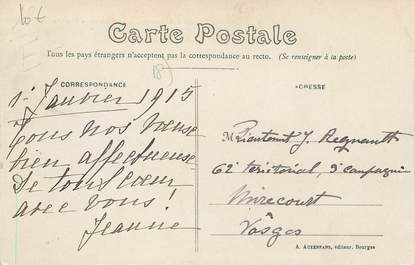 10 €
Carte Postale
Tous les pays étrangers n'acceptent pas la correspondance au recto. (Se renseigner à la poste)
18)
CORRESPONDANCE
ADRESSE
1er Janvier 1915
Tous nos vœux
bien affectueux
De tout cœur
avec vous !
Jeanne
M Lieutenant J. Regnault
62e teritorial, 9e campagnie
Mirecourt
Vosges
A. AUXENFANS, éditeur, Bourges